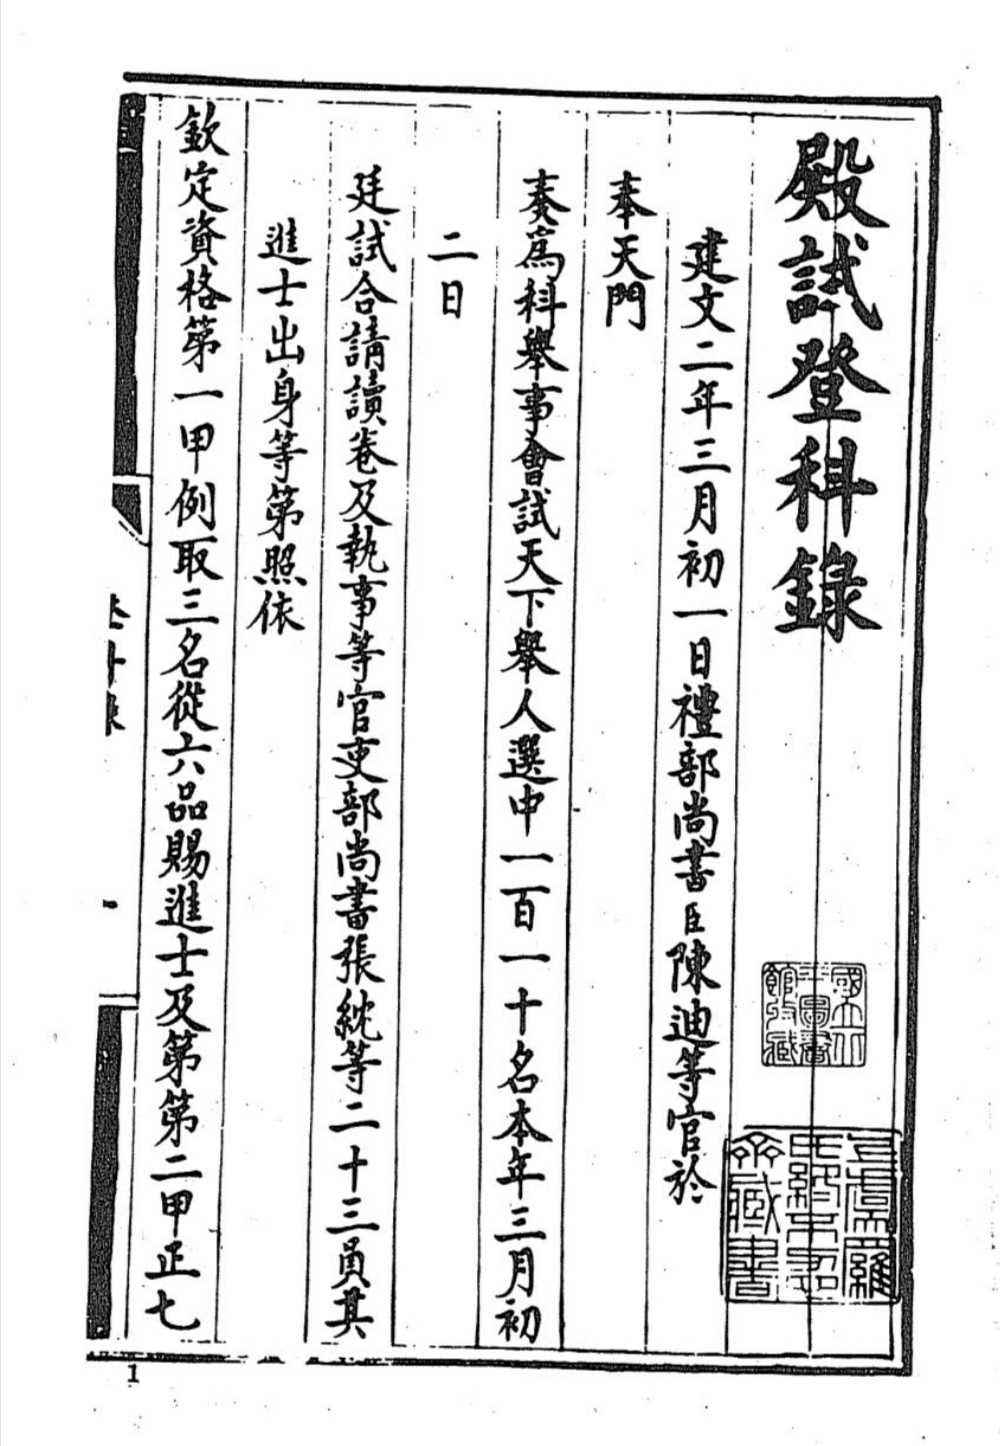 殿試登科錄
建文二年三月初一日禮部尚書臣陳迪等官於
奉天門
奏爲科舉事會試天下舉人選中一百一十名本年三月初
二日
廷試合請讀卷及執事等官吏部尚書張紞等二十三員其
進士出身等第照依
欽定資格第一甲例取三名從六品賜進士及第第二甲正七
國立北
平圖書
館收藏
藏書
1